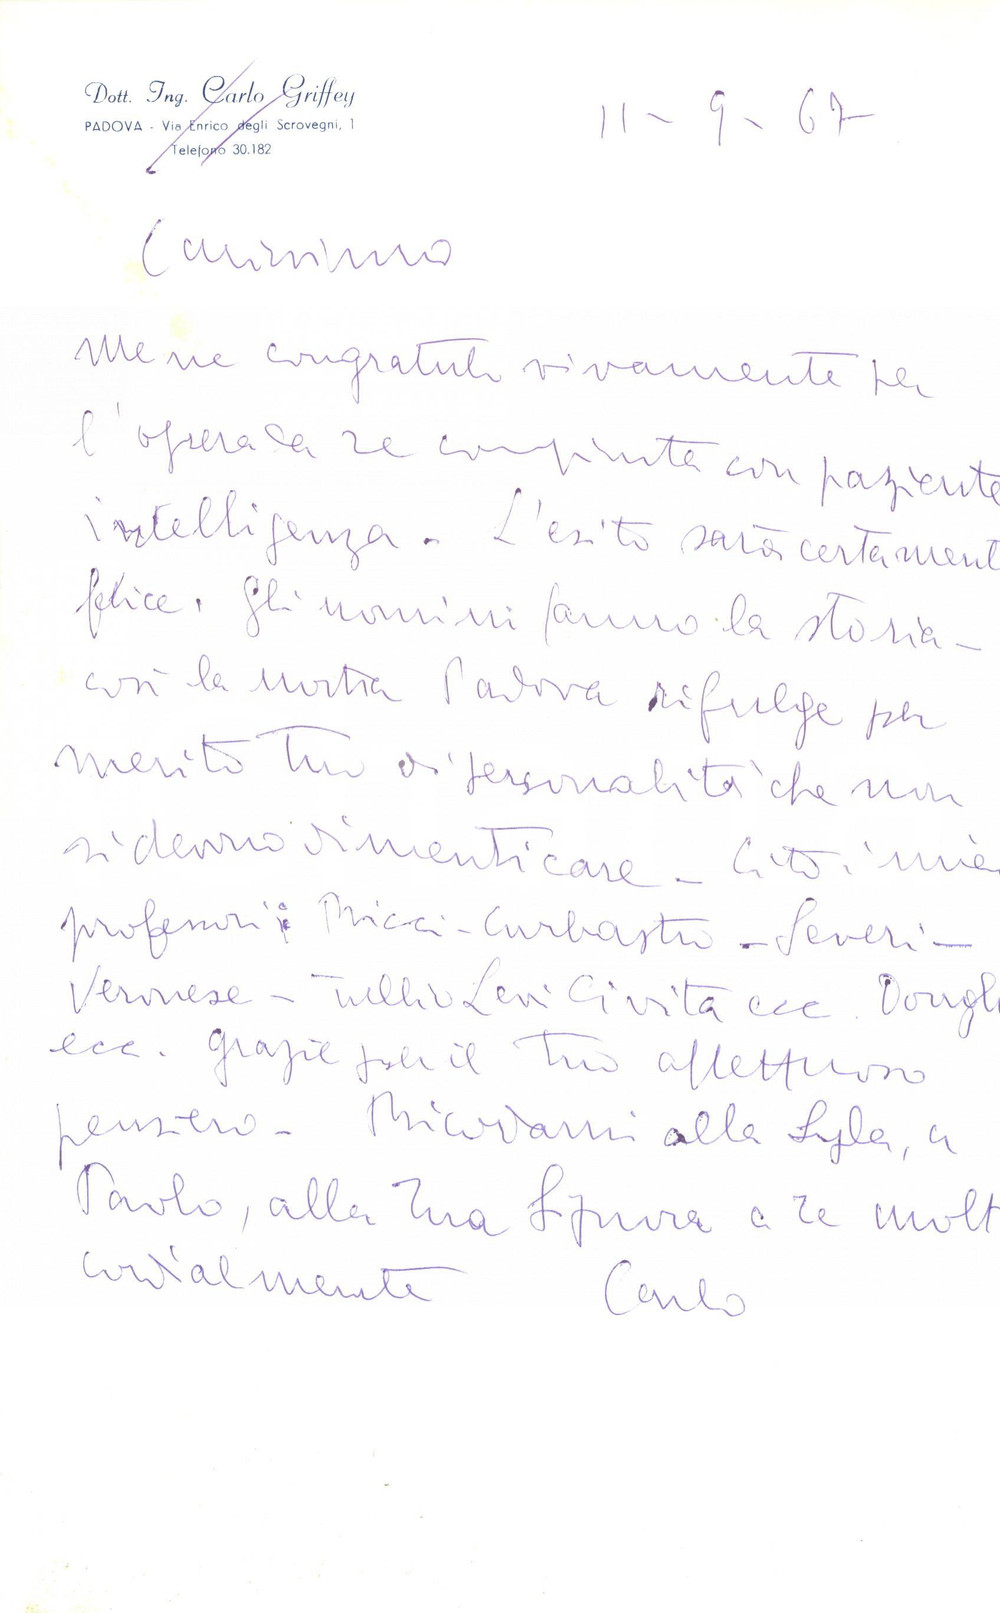 Dott. Ing. Carlo Griffey
PADOVA - Via Enrico degli Scrovegni, 1
Telefono 30.182
11 - 9 - 67
Carissimo
Me ne congratulo vivamente per
l'opera da te compiuta con paziente
intelligenza. L'esito sarà certament
felice. Gli uomini fanno la storia -
così la nostra Padova rifulge per
merito tuo di personalità che non
si devono dimenticare - Cito i mie
professori: Ricci-Curbastro - Severi -
Veronese - Tullio Levi Civita ecc.
ecc. Grazie per il tuo affettuoso
pensiero - Ricordami alla
Paolo, alla tua Signora a te molt
cordialmente Carlo